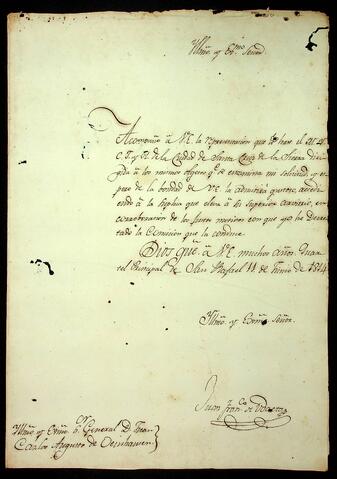 Illmo y Exmo Señor
Acompaño á V.E. la representacion que le hace el M. Y.
C. J. y R. de la Ciudad de Santa Cruz de la Sierra diri
gida á los mismos objetos que encamina mi solicitud, y es
pero de la bondad de V.E. la admitirá gustoso, accedi
endo á la suplica que eleva á su superior
corroboracion de los justos motivos con que yo he
tado la Comision que la conduce
Dios gue. á V.E. muchos años. Quar
tel Principal de San Rafael 11 de Junio de 1824
Illmo y Exmo Señor
Juan Franco.
Illmo y Exmo Sor General D. Juan
Carlos Augusto de Oeynhausen